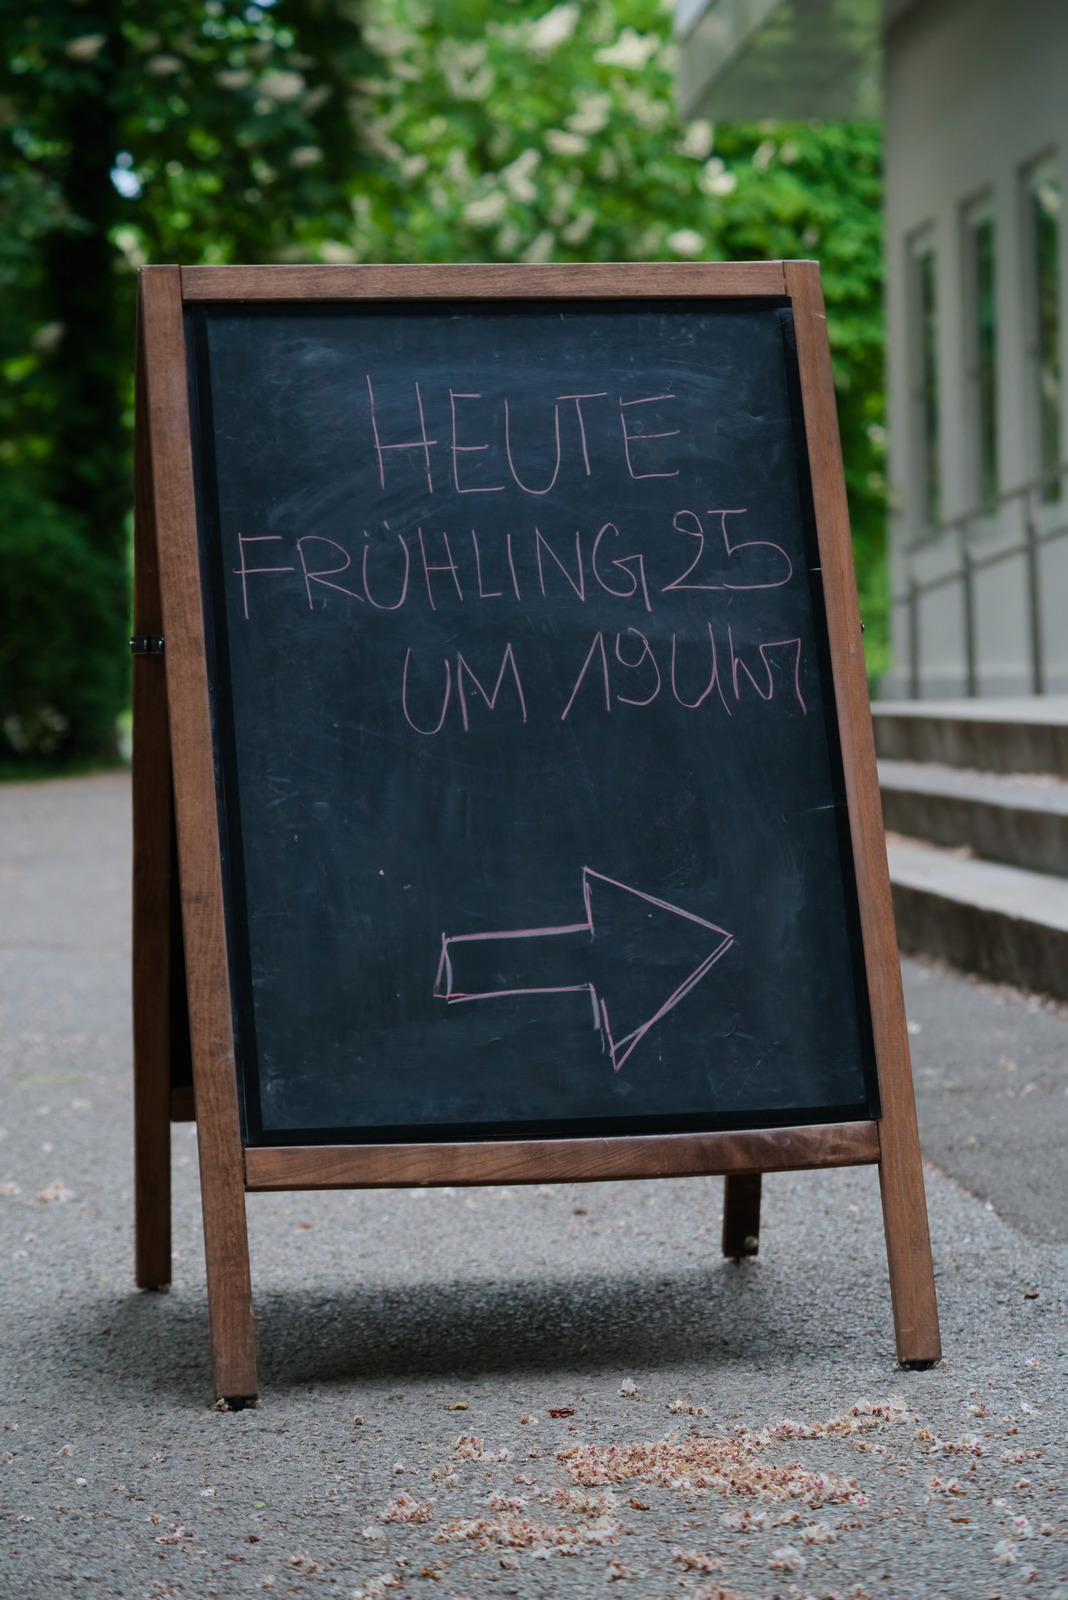 HEUTE
FRÜHLING 25
UM 19 Uhr